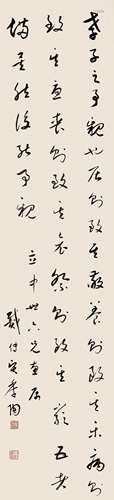 孝子之事親也居則致其敬養則致其樂病則
致其憂喪則致其哀祭則致其嚴五者
備矣然後能事親
立中 兄
戴傳賢季陶